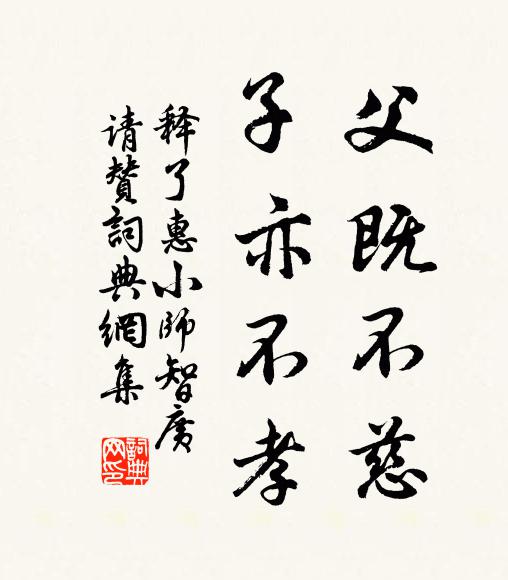 父既不慈
子亦不孝
释了惠小师智广
请赞詞典網集
詞典
网印